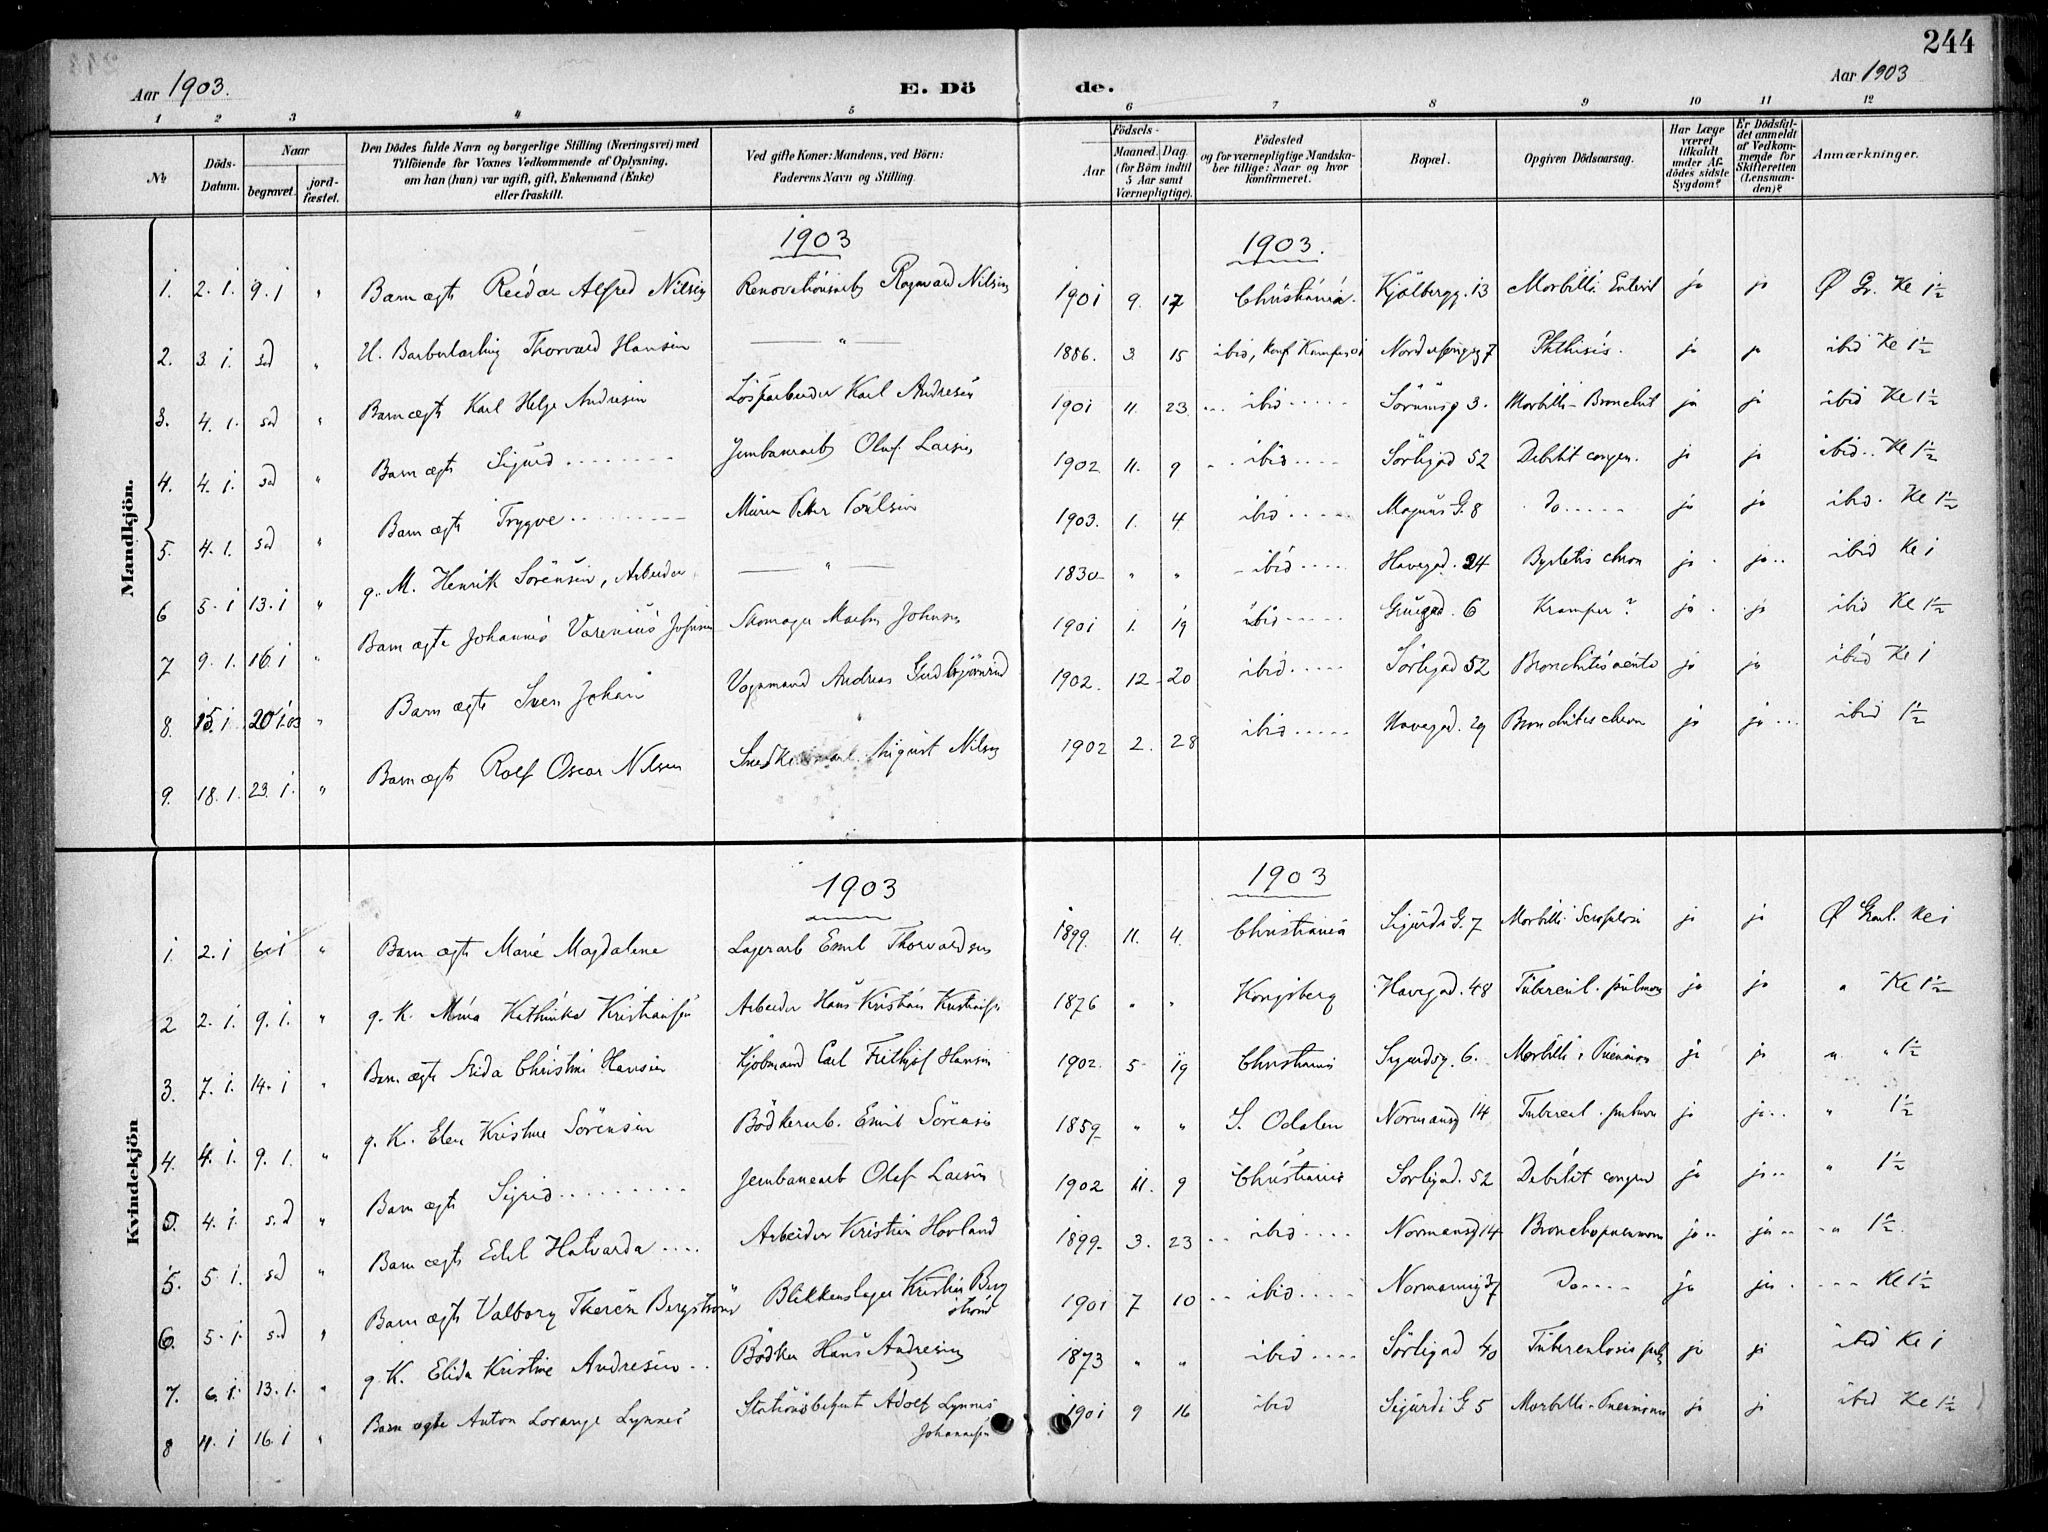 244
Aar 1903.
E. Dö
de.
Aar 1903
1 2 3 4 5 6 7 8 9 10 11 12
№
Döds-Datum.
Naar
begravet.
jord-fæstet.
Den Dödes fulde Navn og borgerlige Stilling (Næringsvei) med
Tilföiende for Voxnes Vedkommende af Oplysning,
om han (hun) var ugift, gift, Enkemand (Enke)
eller fraskilt.
Ved gifte Koner: Mandens, ved Börn:
Faderens Navn og Stilling.
Födsels-
Aar
Maaned. Dag
(for Börn indtil
5 Aar samt
Værnepligtige).
Födested
og for værnepligtige Mandska-
ber tillige: Naar og hvor
konfirmeret.
Bopæl.
Opgiven Dödsaarsag.
Har Læge
været
tilkaldt
under Af-
dödes sidste
Sygdom?
Er Dödsfal-
det anmeldt
af Vedkom-
mende for
Skifteretten
(Lensman-
den)?
Anmærkninger.
Mandkjön.
1903
1903.
1. 2. 1. 9. 1 " Barn ægte Reidar Alfred Nilsen Renovationsarb Ragnvald Nilsen 1901 9. 17 Christiania. Kjölbergg. 13 Morbilli Enterit ja ja Ø Gr. Ke 1½
2. 3 1. sd " U. Thorvald Hansen — " — 1886. 3 15 ibid, konf Kampen 01 7 Phthisis. ja ja ibid Ke 1½
3. 4. 1. sd " Barn ægte Karl Helge Andresen Karl Andresen 1901 11. 23. ibid Sörumsg 3. Morbilli - Bronchit ja ja ibid Ke 1½
4. 4. 1. sd " Barn ægte Sigurd Jernbanearb Oluf Larsen 1902 11. 9 ibid Sörligad 52 Debilit congen. ja ja ibid Ke 1½
5. 4. 1. sd " Barn ægte Trygve Murer Peter Poulsen 1903. 1. 4 ibid Magnus G. 8 Do ja ja ibid. Ke 1½
6 5. 1 13. 1 " g. M. Henrik Sörensen, Arbeider — " — 1830 " " ibid Havegad. 24 chron ja ja ibid Ke 1
7 9. 1. 16. 1 " Barn ægte Johannes Varenius Johnsen Skomager Johnsen 1901 1. 19 ibid Gruegad. 6 Kramper? ja ja ibid Ke 1½
8. 15. 1. 20 1. 03 " Barn ægte Sven Johan Vognmand Andreas Gudbjörnrud 1902. 12 20 ibid Sörligad 52 Bronchitis acuta ja ja ibid Ke 1
9. 18. 1. 23. 1. " Barn ægte Rolf Oscar Nilsen August Nilsen 1902 2. 28 ibid Havegad. 29 Bronchitis chron ja ja ibid 1½
Kvindekjön
1903
1903
1. 2. 1 6. 1 " Barn ægte Marie Magdalene Lagerarb Emil Thorvaldsen 1899. 11. 4. Christiania Sigurds G. 7 Morbilli ja ja Ø Gravl. Ke 1
2 2. 1. 9. 1. " g. K. Mina Kathinka Kristiansen Arbeider Hans Kristian Kristiansen 1876 " " Kongsberg Havegad. 48 Tubercul. pulmon ja ja " Ke 1½
3. 7. 1. 14. 1 " Barn ægte Christine Hansen Kjöbmand Carl Frithjof Hansen 1902. 5 19 Christiania Sigurdsg. 6. Morbilli, Pneumon ja ja " " 1½
4. 4. 1. 9. 1. " g. K. Elen Kristine Sörensen Bödkerarb. Emil Sörensen 1859 " " S. Odalen Normansg 14 Tubercul. pulmon ja ja " 1½
5. 4. 1. sd " Barn ægte Sigrid Jernbanearb Olaf Larsen 1902 11. 9 Christiania Sörligad. 52 Debilit congen ja ja " 1½
5. 5 1. sd " Barn ægte Edel Halvarda Arbeider Kristian Hovland 1899. 3. 23 ibid Normansg 14 Bronchopneumon ja ja " 1½
6. 5. 1. sd " Barn ægte Valborg Therese Bergström Blikkenslager Kristian Berg
ström 1901 7 10 ibid 37 Do ja ja Ke 1½
7. 6. 1. 13. 1. " g. K. Elida Kristine Andresen Bödker Hans Andresen 1873 " " ibid Sörligad 40 Tuberculosis pulm ja ja ibid Ke 1
8 11. 1 16. 1 " Barn ægte Anton Lorange Lynnes Stationsbetjent Adolf Lynnes
Johannesen 1901 9 16 ibid Sigurds G 5 Morbilli - Pneumoni ja ja ibid Ke 1½